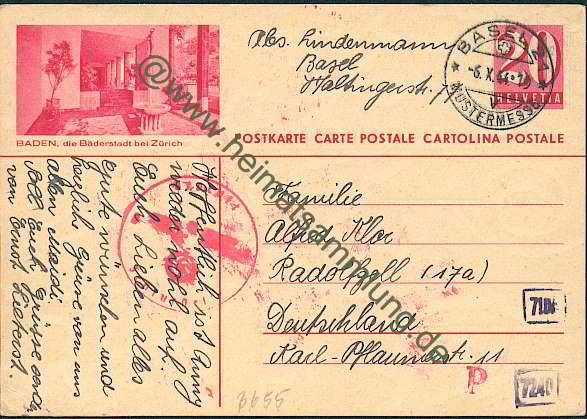 Abs. Lindenmann
Basel
Haltingerstr. 77
BASEL
-6.X.44
MUSTERMESSE
20
HELVETIA
BADEN, die Bäderstadt bei Zürich
POSTKARTE CARTE POSTALE CARTOLINA POSTALE
@www.heimatsammlung.de
Hoffentlich ist Anny
wieder wohl auf.
Euch Lieben alles
gute wünschen und
herzlich Grüssen von uns
allen Maidi
Grüsse
von Ernst
Familie
Alfred Klor
Radolfzell (17a)
Deutschland
Karl-Pflaumerstr. 11
P
7240
3655